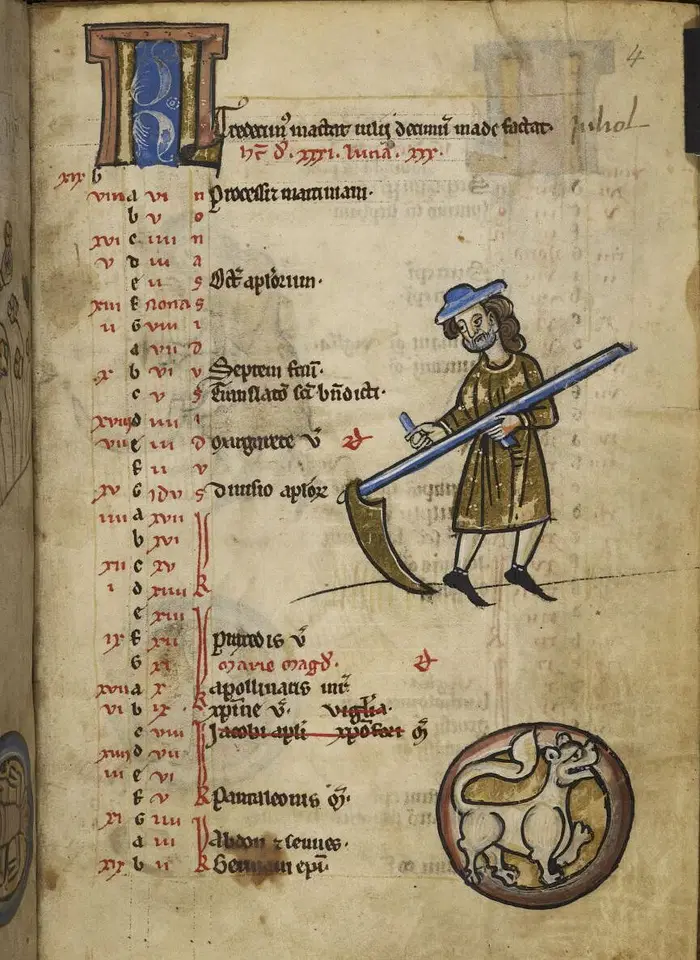 4
KL
Tredecimꝰ mactat iulij decimꝰ made factat. Julÿ
hꝫ d̓. xxxi. luna. xxx.
xix b
viii a vi n Processi ⁊ martiniani.
b v o
xvi c iiii n
v d iii a
e ii s Oct̄ aploꝝum.
xiii f nonas
ii g viii i
a vii d
x b vi v Septem fr̄m.
c v s Translatō sc̄i bn̄dicti.
xviii d iiii i
vii e iii d margarete v̄
f ii v
xv g idus Diuisio aploꝝ
iiii a xvii
b xvi
xii c xv
i d xiiii
e xiii
ix f xii Praxedis v̄
g xi Marie magd̓.
xvii a x apollinaris mr̄
vi b ix xp̄ine v̄. vigl̓ia
c viii Jacobi apl̓i xpōfori m̄
xiiii d vii
iii e vi
f v Pantaleonis m̄.
xi g iiii
a iii Abdon ⁊ sennes.
xix b ii Germani ep̄i.